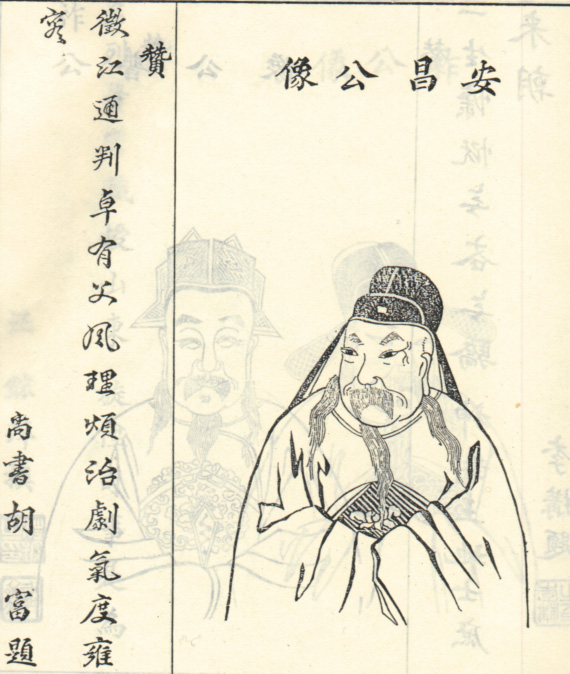 安昌公像
贊
徵江通判卓有父風理煩治劇氣度雍
容
尚書胡 富題